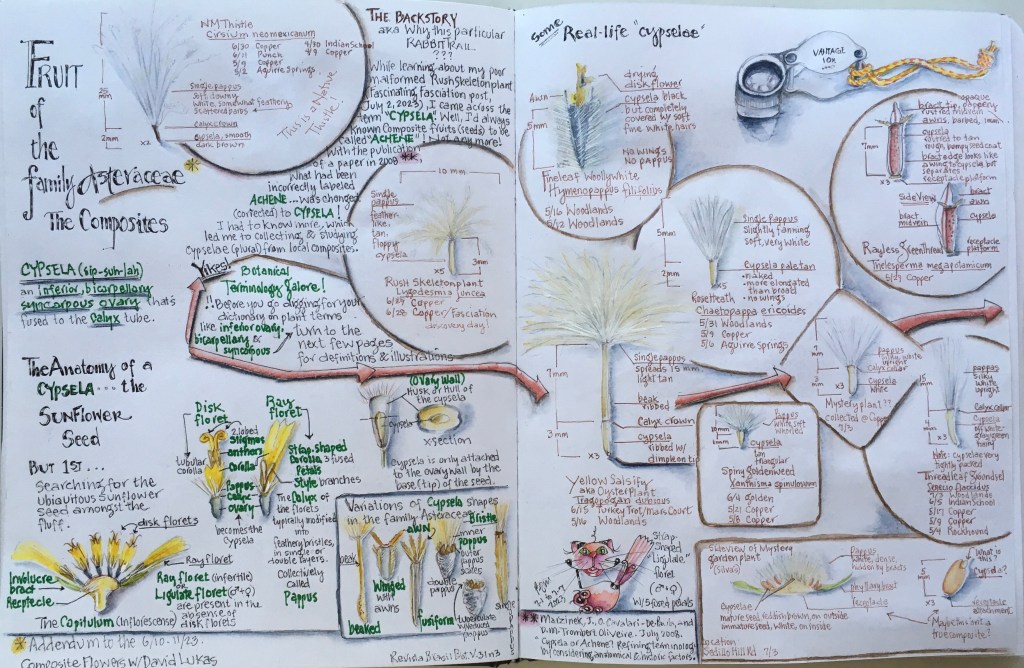 Fruit
of
the
family Asteraceae
The Composites
CYPSELA (sip-suh-lah)
an inferior bicarpellary
syncarpous ovary that's
fused to the calyx tube.
The Anatomy of a
CYPSELA .... the
SUNFLOWER
Seed
But 1st...
Searching for the
Ubiquitous Sunflower
Seed amongst the
fluff.
NM Thistle
Cirsium neomexicanum
6/30 Copper
6/11 Punch
5/9 Copper
5/2 Aguirre Springs
4/30 Indian School
4/9 Copper
25
mm
2mm
x2
single pappus
soft, downy
white, somewhat feathery
calyx crown
cypsela, smooth
dark brown
This is a Native
Thistle!
The Backstory
aka Why this particular
RABBIT RAIL
???
While learning about my poor
malformed Rush Skeletonplant
(fascinating fasciation post,
July 2, 2023), I came across the
term "CYPSELA"! Well, I'd always
known Composite fruits (seeds) to be
called "ACHENE"! Not any more!
With the publication
of a paper in 2008 **
What had been
incorrectly labeled
ACHENE ... was changed
(corrected) to CYPSELA!
I had to know more, which
led me to collecting & studying
cypselae (plural) from local composites.
10 mm
Single
pappus
feather-
like,
tan,
floppy
cypsela
x5
3mm
Rush Skeletonplant
Lygodesmia juncea
6/27 Copper
6/28 Copper/Fasciation
discovery day!
Yikes!
Botanical
Terminology galore!
!! Before you go digging for your
dictionary on plant terms..
like inferior ovary,
bicarpellary &
syncarpous
turn to the
next few pages
for definitions & illustrations
Disk
floret
Ray
floret
2 lobed
Stigmas
anthers
Corolla
tubular
corolla
Pappus
calyx
ovary
becomes the
Cypsela
Strap-shaped
Corolla 3 fused
Petals
Style branches
The Calyx of
the florets
typically modified
into
feathery bristles,
in single or
double layers.
Collectively
called
Pappus
(Ovary Wall)
Husk or Hull of
the cypsela
x section
cypsela is only attached
to the ovary wall by the
base (tip) of the seed.
disk florets
Ray floret
Involucre
bract
Receptacle
Ray floret (infertile)
Ligulate floret (♂+♀)
are present in the
absence of
disk florets
The Capitulum (Inflorescence)
* Addendum to the 6/10-11/23
Composite Flowers w/ David Lukas
Variations of Cypsela shapes
in the family Asteraceae
beak
beaked
Winged
with
awns
awn
fusiform
Bristle
inner
pappus
outer
pappus
scales
double
pappus
tuberculate
w/ reduced
pappus
single
Revista Brasil Bot. V.31 n3
some Real-life "cypselae"
VANTAGE
10X
Awn
5mm
drying
disk flower
cypsela black
but completely
covered w/ soft
fine white hairs
No wings
No pappus
Fineleaf Woollywhite
Hymenopappus filifolius
5/16 Woodlands
5/12 Woodlands
5mm
2mm
x5
Single Pappus
Slightly fanning
soft, very white
Cypsela pale tan
• naked
• more elongated
than broad
• no wings
Roseheath
Chaetopappa ericoides
5/31 Woodlands
5/9 Copper
5/6 Aguirre Springs
7mm
x3
opaque
bract tip, papery
rusted midvein
awns, barbed, 1mm
cypsela
rusted to tan
rough, bumpy seed coat
bract edge looks like
a wing to cypsela but
separates
receptacle platform
Side View
bract
midvein
bract
awn
cypsela
receptacle
platform
Rayless Greenthread
Thelesperma megapotamicum
5/27 Copper
7mm
3mm
x3
single pappus
spreads 15 mm
light tan
beak
ribbed
Calyx crown
cypsela
ribbed w/
dimple on tip
Yellow Salsify
aka Oyster Plant
Tragopogon dubious
6/15 Turkey Trot/Mars Court
5/16 Woodlands
Pappus
white, soft
cypsela
tan
triangular
Spiny goldenweed
Xanthisma spinulosum
6/4 Golden
5/21 Copper
5/8 Copper
pappus
silky, white,
upright
Calyx collar
cypsela
white
x3
Mystery plant??
collected @ Copper
7/3
15
mm
x3
pappus
silky
white,
upright
Calyx collar
Cypsela
off white-
Note: cypselae very
tightly packed
Threadleaf Groundsel
Senecio flaccidus
7/3 Woodlands
6/5 Indian School
5/17 Copper
5/9 Copper
5/4 Rockhound
Strap-
Shaped
"Ligulate"
floret
(♂+♀)
w/ 5 fused petals
Side view of Mystery
garden plant
(Silvas)
Pappus
white, dense,
hidden by bracts
phyllary bract
receptacle
Cypselae
mature seed reddish brown on outside
immature seed, white, on inside
Location
Sadillo Hill Rd 7/3
What is
this?
Cypsela?
5
mm
receptacle
attachment
Maybe this isn't a
true composite?
** Marzinek, J., O. Cavalari-De-Paula, and
D.M. Trombert Oliveira. July 2008.
Cypsela or Achene? Refining terminology
by considering anatomical & historic factors.